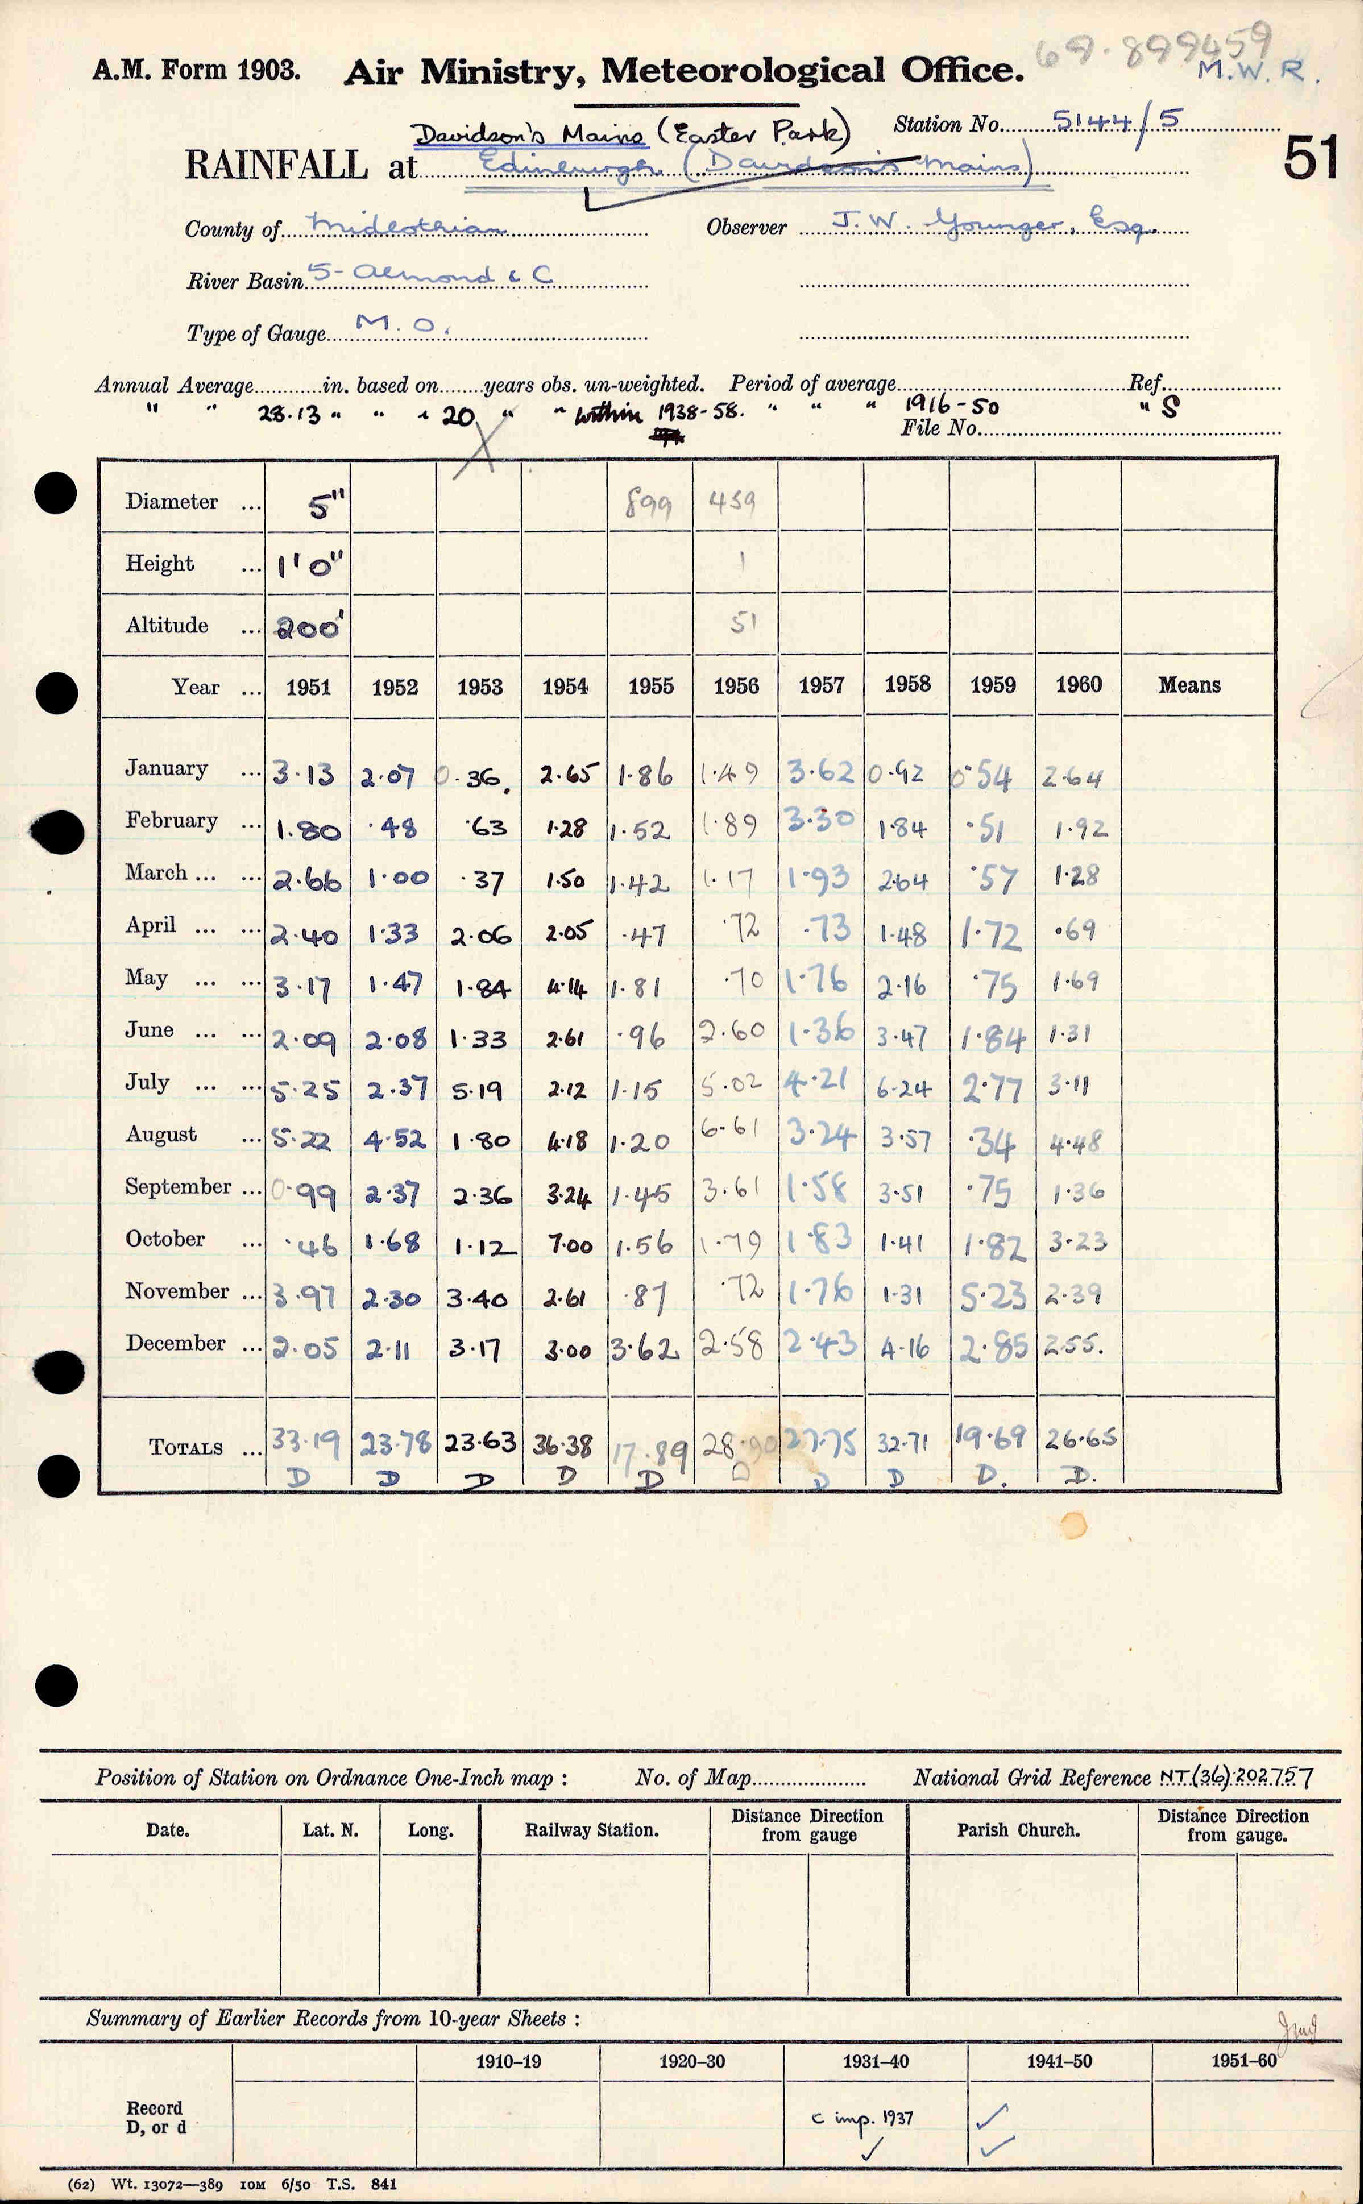 69.899459
A.M. Form 1903. Air Ministry, Meteorological Office. M.W.R.
Station No. 5144/5
Davidson's Mains (Easter Park)
51
RAINFALL at Edinburgh (Davidson's Mains)
County of Midlothian Observer J. W. Younger, Esq.
River Basin 5- Almond & C
Type of Gauge M.O.
Annual Average in. based on years obs. un-weighted. Period of average Ref.
" " 28.13 " " " 20 " " within 1938-58. " " " 1916-50 " S
File No.
Diameter ... 5" 899 459
Height ... 1'0" 1
Altitude ... 200' 51
Year ... 1951 1952 1953 1954 1955 1956 1957 1958 1959 1960 Means
January ... 3.13 2.07 0.36 2.65 1.86 1.49 3.62 0.92 0.54 2.64
February ... 1.80 .48 .63 1.28 1.52 1.89 3.30 1.84 .51 1.92
March ... ... 2.66 1.00 .37 1.50 1.42 1.17 1.93 2.64 .57 1.28
April ... ... 2.40 1.33 2.06 2.05 .47 .72 .73 1.48 1.72 .69
May ... ... 3.17 1.47 1.84 4.14 1.81 .70 1.76 2.16 .75 1.69
June ... ... 2.09 2.08 1.33 2.61 .96 2.60 1.36 3.47 1.84 1.31
July ... ... 5.25 2.37 5.19 2.12 1.15 5.02 4.21 6.24 2.77 3.11
August ... 5.22 4.52 1.80 4.18 1.20 6.61 3.24 3.57 .34 4.48
September ... 0.99 2.37 2.36 3.24 1.45 3.61 1.58 3.51 .75 1.36
October ... .46 1.68 1.12 7.00 1.56 1.79 1.83 1.41 1.82 3.23
November ... 3.97 2.30 3.40 2.61 .87 .72 1.76 1.31 5.23 2.39
December ... 2.05 2.11 3.17 3.00 3.62 2.58 2.43 4.16 2.85 2.55.
TOTALS ... 33.19 23.78 23.63 36.38 17.89 28.90 27.75 32.71 19.69 26.65
D D D D D D D D D. D.
Position of Station on Ordnance One-Inch map : No. of Map National Grid Reference NT.(36).202757
Date. Lat. N. Long. Railway Station. Distance Direction from gauge Parish Church. Distance Direction from gauge.
Summary of Earlier Records from 10-year Sheets :
1910–19 1920–30 1931–40 1941–50 1951–60
Record
D, or d
c imp. 1937 ✓
✓ ✓
(62) Wt. 13072—389 10M 6/50 T.S. 841